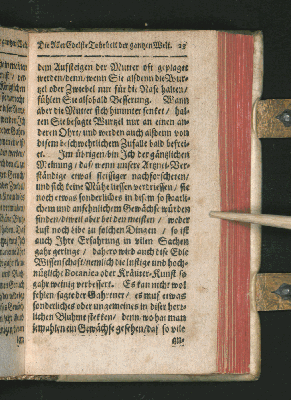 Die Aller Edelste Thorheit der gantzen Welt. 23
dem Auffsteigen der Mutter oft geplaget
werden/denn/wenn Sie alsdenn die Wur-
tzel oder Zwiebel nur für die Nase halten/
fühlen Sie alsobald Besserung. Wann
aber die Mutter sich hinunter sencket / hal-
ten Sie besagte Wurtzel nur an einen an-
deren Ohrt/ und werden auch alsdenn von
disem beschwehrlichem Zufalle bald befrei-
et. Im übrigen/bin Ich der gänzlichen
Meinung / daß wenn unsere Artznei-Ver-
ständige etwaß fleissiger nachforscheten/
und sich keine Mühe liessen verdriessen / sie
noch etwas sonderliches in disem so
und ansehnlichem Gewächse würden
finden/dieweil aber bei den meisten / weder
lust noch libe zu solchen Dingen / so ist
auch Ihre Erfahrung in vilen Sachen
gahr geringe / dahero wird auch dise Edle
Wissenschaft/nemlich die lustige und hoch-
nützliche Botanica oder Kräuter-Kunst so
gahr wenig verbessert. Es kan nicht wol
fehlen sagte der / es muß etwas
sonderliches oder ungemeines in diser herr-
lichen Bluhme stekken / denn wo hat man
jemahlen ein Gewächse gesehen/daß so vile